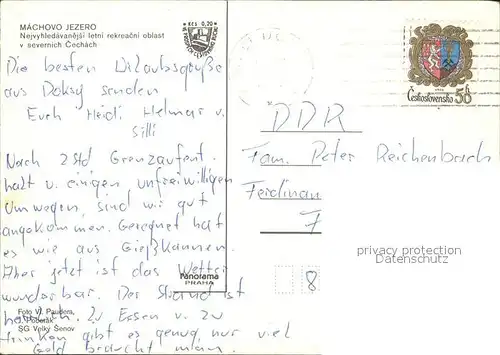 MÁCHOVO JEZERO
Nejvyhledávanější letní rekreační oblast
v severních Čechách
Kčs 0,20
Die besten Urlaubsgrüße
aus Doksy senden
Euch Heidi Helmar u.
Silli
Nach 2 Std Grenzaufent-
halt u. einigen unfreiwilligen
Umwegen, sind wir gut
angekommen. Geregnet hat
es wie aus Gießkannen.
Aber jetzt ist das Wetter
wunderbar. Der Strand ist
herrlich. Zu Essen u. zu
trinken gibt es genug, nur viel
Geld braucht man.
Panorama
PRAHA
Foto Vl.
SG Velký Šenov
Československo 50h
DDR
Fam. Peter Reichenbach
Ferdinan
7
8
privacy protection
Datenschutz